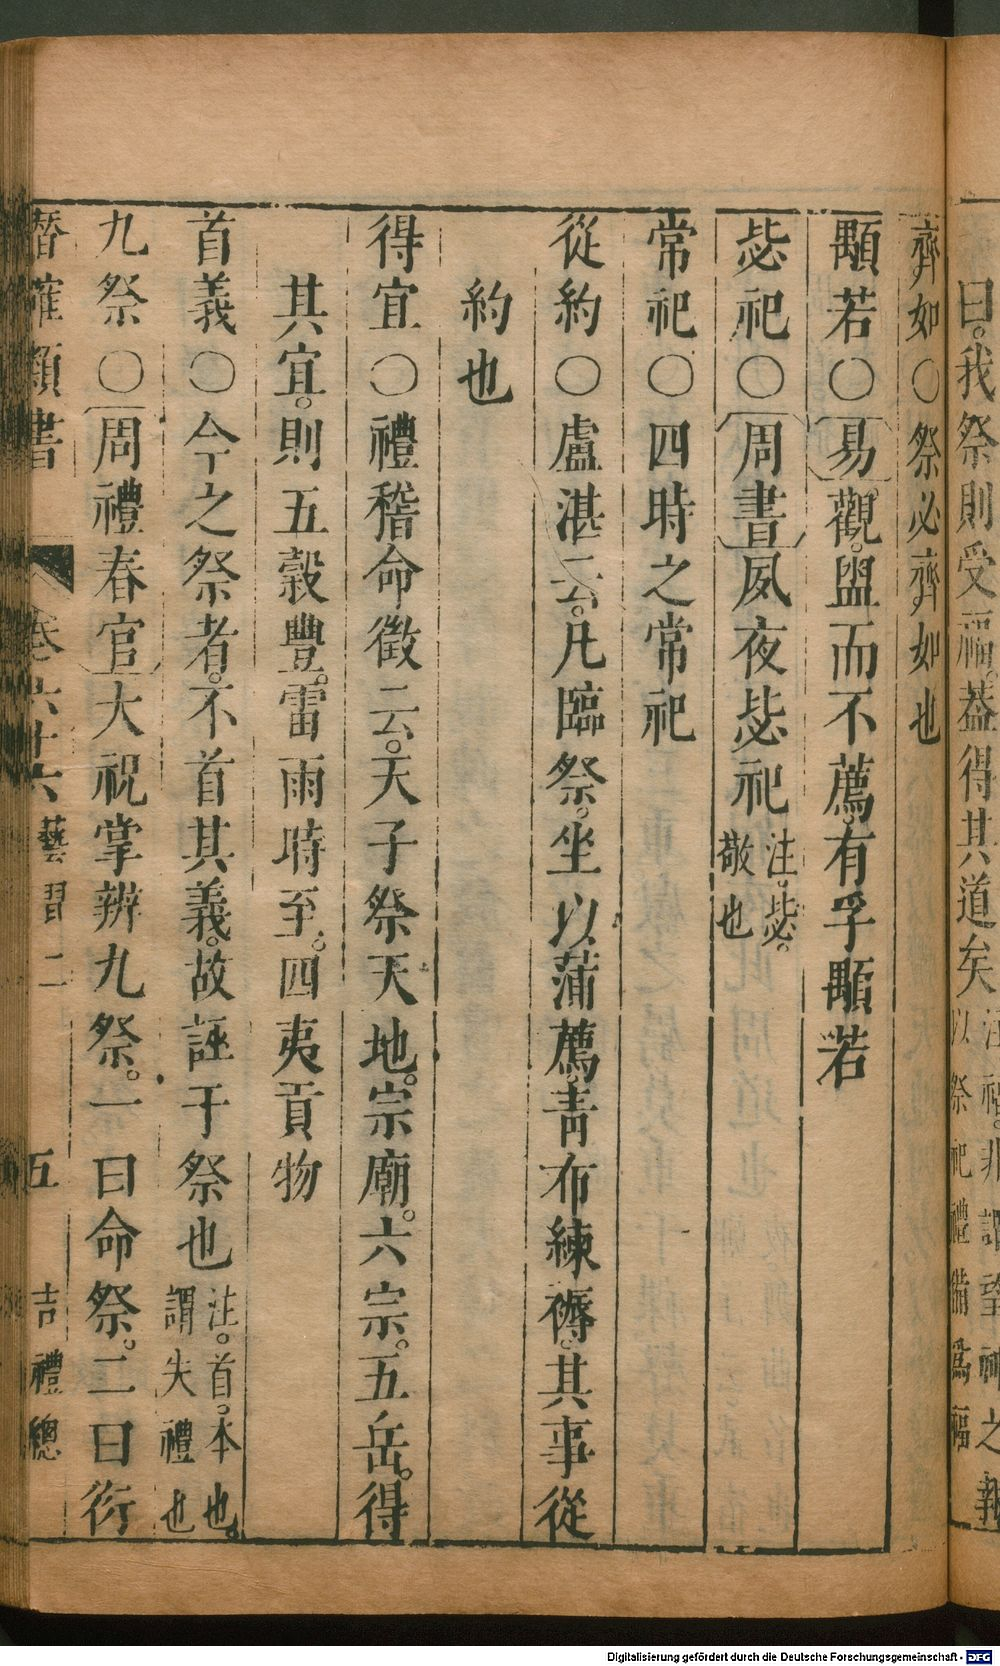 曰。我祭則受福。葢得其道矣
注。福。非謂望神之報
以祭祀禮備爲福
齊如〇祭必齊如也
顒若〇易觀。盥而不薦。有孚顒若
毖祀〇周書夙夜毖祀注。毖。敬也
常祀〇四時之常祀
從約〇盧湛云。凡臨祭。坐以蒲薦。靑布練褥。其事從
約也
得宜〇禮稽命徵云。天子祭天地。宗廟。六宗。五岳。得
其宜。則五穀豐。雷雨時至。四夷貢物
首義〇今之祭者。不首其義。故誣于祭也注。首。本也。謂失禮也
九祭〇周禮春官大祝掌辨九祭。一曰命祭。二曰衍
潛確類書 卷六十六 藝習二 五 吉禮總
Digitalisierung gefördert durch die Deutsche Forschungsgemeinschaft - DFG